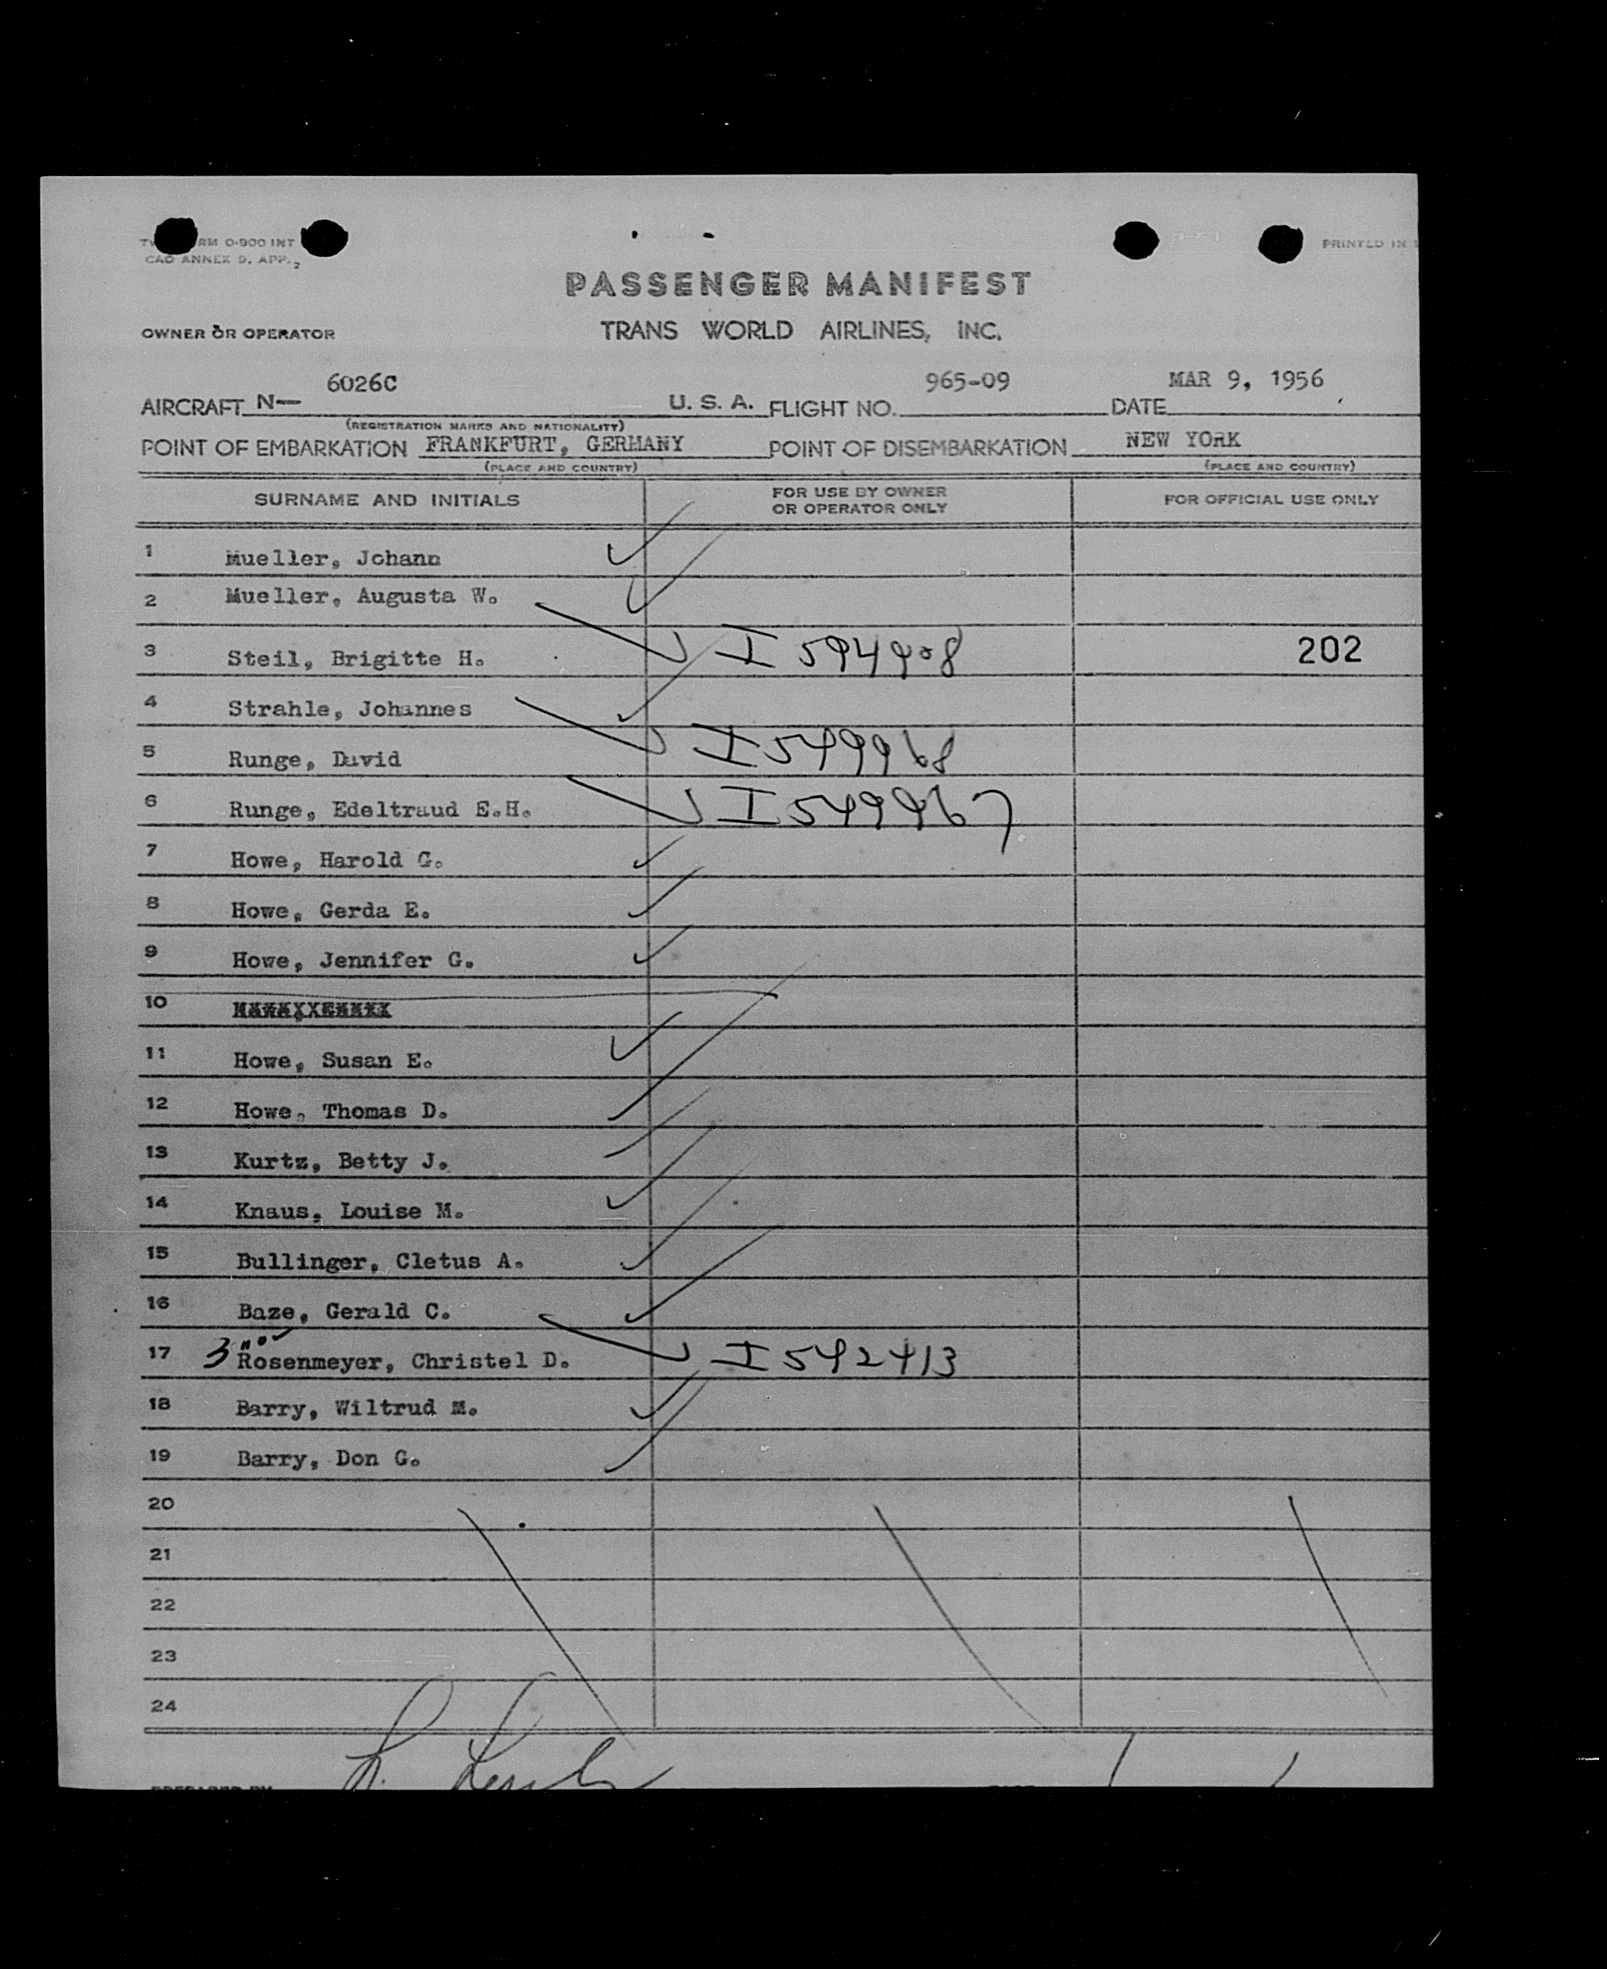 RM 0-900 INT
CAO ANNEX 9, APP. 2
PRINTED IN
PASSENGER MANIFEST
OWNER OR OPERATOR
TRANS WORLD AIRLINES, INC.
AIRCRAFT N— 6026C U. S. A. FLIGHT NO. 965-09 DATE MAR 9, 1956
(REGISTRATION MARKS AND NATIONALITY)
POINT OF EMBARKATION FRANKFURT, GERMANY POINT OF DISEMBARKATION NEW YORK
(PLACE AND COUNTRY) (PLACE AND COUNTRY)
SURNAME AND INITIALS FOR USE BY OWNER OR OPERATOR ONLY FOR OFFICIAL USE ONLY
1 Mueller, Johann
2 Mueller, Augusta W.
3 Steil, Brigitte H. I 594908 202
4 Strahle, Johannes
5 Runge, David I 549968
6 Runge, Edeltraud E.H. I 549967
7 Howe, Harold G.
8 Howe, Gerda E.
9 Howe, Jennifer G.
10
11 Howe, Susan E.
12 Howe, Thomas D.
13 Kurtz, Betty J.
14 Knaus, Louise M.
15 Bullinger, Cletus A.
16 Baze, Gerald C.
17 3 Rosenmeyer, Christel D. I 542413
18 Barry, Wiltrud M.
19 Barry, Don G.
20
21
22
23
24
PREPARED BY